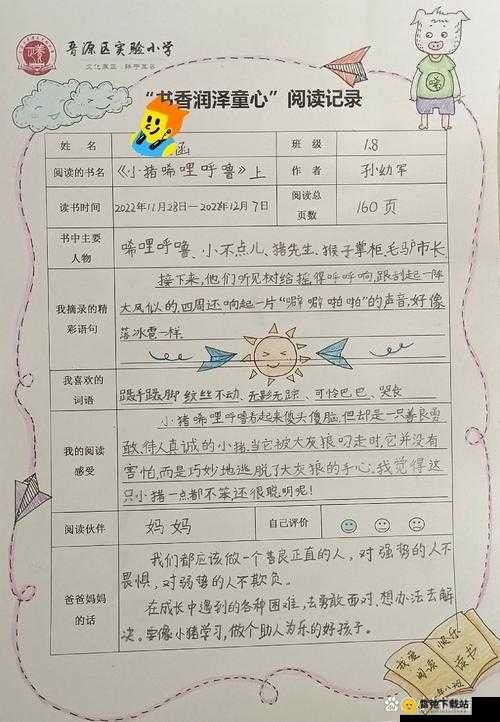 晋源区实验小学
文化立区 陈学互名
“书香润泽童心”阅读记录
姓 名 涵 班 级 1.8
阅读的书名 《小猪唏哩呼噜》上 作 者 孙幼军
读书时间 2022年11月28日—2022年12月7日 阅读总页数 160页
书中主要人物 唏哩呼噜、小不点儿、猪先生、猴子掌柜、毛驴市长
我摘录的精彩语句
接下来,他们听见树给摇得呼呼响,跟刮起一阵
大风似的,四周还响起一片“噼噼啪啪”的声音,好像
落冰雹一样。
我喜欢的词语 蹑手蹑脚 纹丝不动、无影无踪、可怜巴巴、哭丧
我的阅读感受
小猪唏哩呼噜看起来傻头傻脑,但却是一只善良勇
敢、待人真诚的小猪,当它被大灰狼叼走时,它并没有
害怕,而是巧妙地逃脱了大灰狼的手心,我觉得这
只小猪一点都不笨还很聪明呢!
阅读伙伴 妈妈 自己评价
爸爸妈妈的话
我们都应该做一个善良正直的人,对强势的人不
畏惧,对弱势的人不欺负。
在成长中遇到的各种困难,去勇敢面对,想办法去解
决。要像小猪学习,做个助人为乐的好孩子。
我爱阅读
快乐读书
露兜下载站